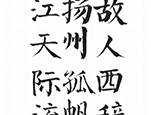 故人西辞
扬州孤帆
江天际流